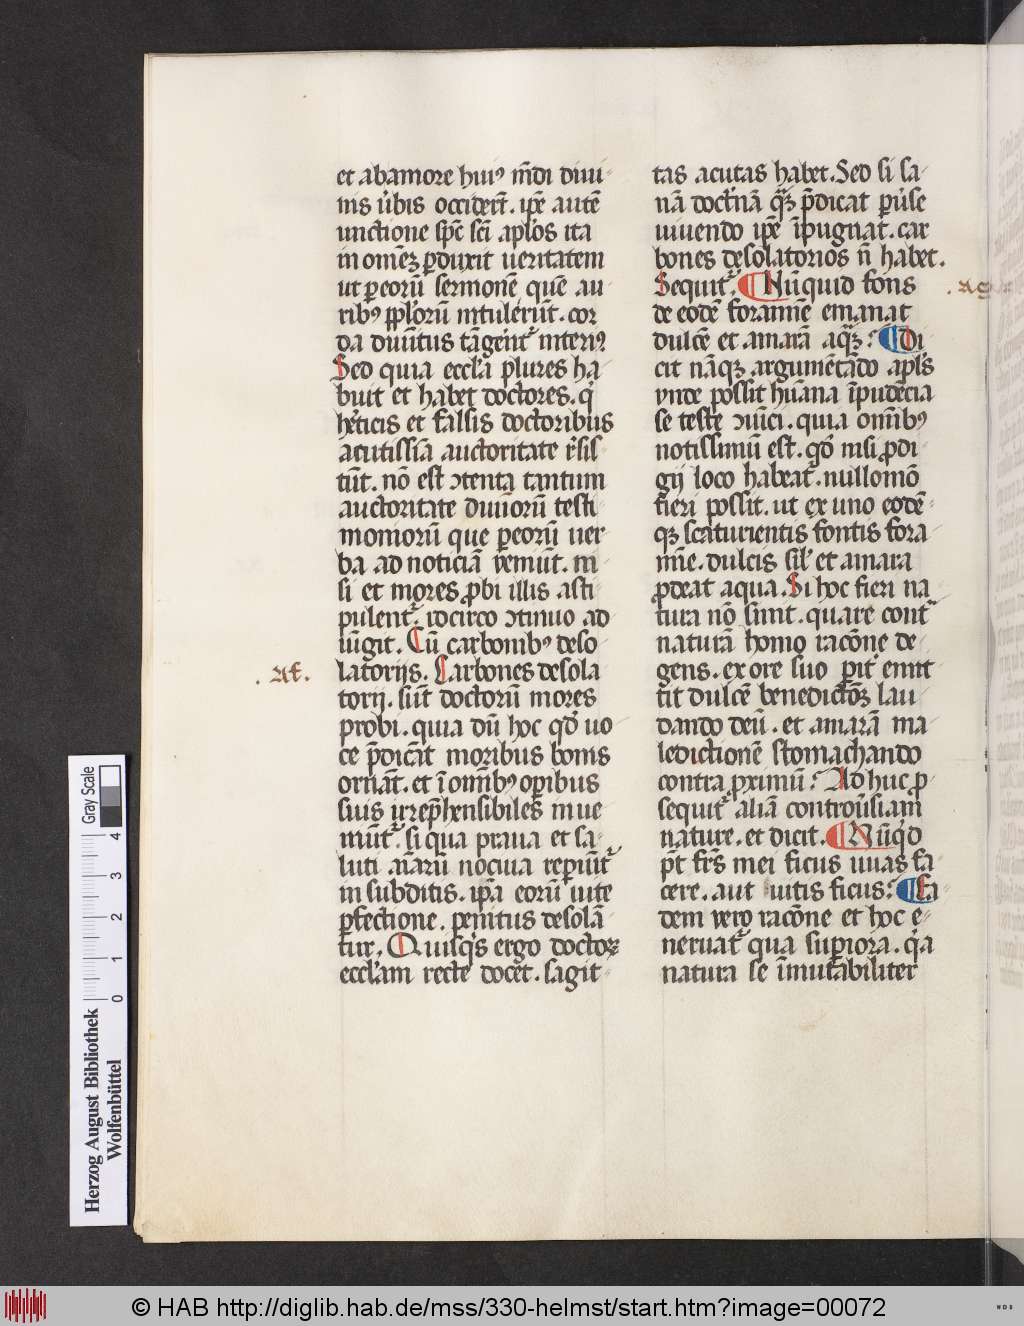 et abamore huiꝰ m̄di diui-
nis u̓bis occider̄t. ip̄e autē
unctione sp̄c sc̄i apl̓os ita
in om̄eꝫ ꝑduxit ueritatem
ut ꝑeorū sermonē quē au-
ribꝰ ppl̓orū intuler̄ut. cor
da diuītus tāgent᷑ interiꝰ
Sed quia eccl̓a plures ha-
buit et habet doctores. q̓
he̓ticis et falsis doctoribus
acutissīa auctoritate r̓sis-
tūt. nō est ↄtenta tantum
auctoritate diuīorū testi-
moniorū que ꝑeorū uer-
ba ad noticiā ꝟeniūt. ni-
si et mores ꝓbi illis asti-
pulent᷑. idcirco ↄtinuo ad
iūgit. Cū carbonibꝰ deso
latorijs. Carbones desola
torij. sūt doctorū mores
probi. quia dū hoc qd̓ uo-
ce p̄dicāt moribus bonis
ornāt. et ī om̄ibꝰ oꝑibus
suis irrep̄hensibiles inue
niūt᷑. si qua praua et sa-
luti aīarū nociua repiūt᷑
in subditis. ip̄a eorū uite
ꝑfectione. penitus desolā-
tur. Quisq̓s ergo doctoꝝ
eccl̓am recte docet. sagit-
tas acutas habet. Sed si sa-
nā doct̓nā qꝫ p̄dicat ꝑu̓se
uiuendo ip̄e īpugnat. car
bones desolatorios n̄ habet.
Sequit᷑. Nūquid fons
de eodē foramīe emanat
dulcē et amarā aqꝫ? Di
cit nāqꝫ argumētādo apl̓s
vnde possit hūana īpudēcia
se teste ↄuīci. quia om̄ibꝰ
notissimū est. qd̓ nisi prodi
gij loco habeat᷑. nullomō
fieri possit. ut ex uno eodē-
qꝫ scaturientis fontis fora
mīe. dulcis sil̓ et amara
ꝓdeat aqua. Si hoc fieri na
tura nō sinit. quare cont᷑
naturā homo racōne de-
gens. ex ore suo ꝑit᷑ emit
tit dulcē benedictōꝫ lau-
dando deū. et amarā ma
ledictionē stomachando
contra proximū? Ad huc ꝑ
sequit᷑ aliā controu̓siam
nature. et dicit. Nūq̓d
p̄t fr̄s mei ficus uuas fa
cere. aut uitis ficus? Ea-
dem vero racōne et hoc e-
neruat᷑ qua supiora. q̓a
natura se īmutabiliter
. Af.
Herzog August Bibliothek
Wolfenbüttel
Gray Scale
0 1 2 3 4
© HAB http://diglib.hab.de/mss/330-helmst/start.htm?image=00072